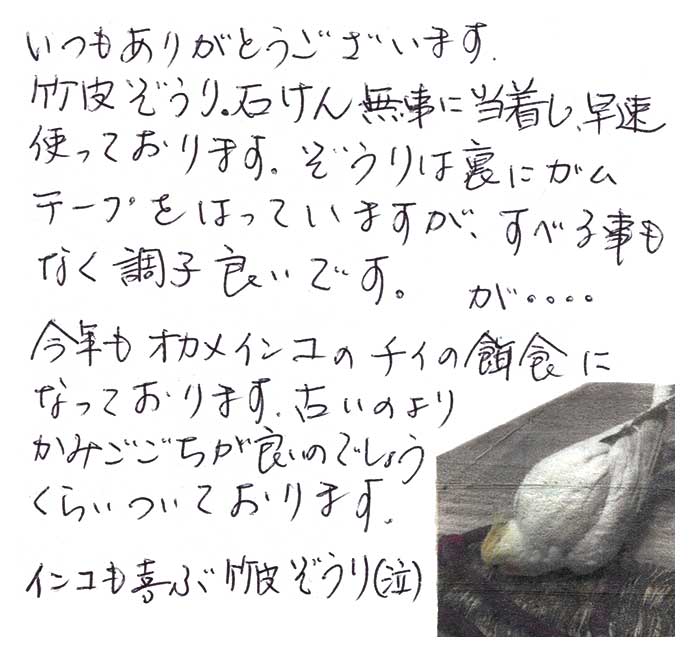 いつもありがとうございます.
竹皮ぞうり。石けん無事に当着し、早速
使っております。ぞうりは裏にガム
テープをはっていますが、すべる事も
なく調子良いです。 が・・・・
今年もオカメインコのチイの餌食に
なっております.古いのより
かみごごちが良いのでしょう
くらいついております.
インコも喜ぶ竹皮ぞうり(泣)